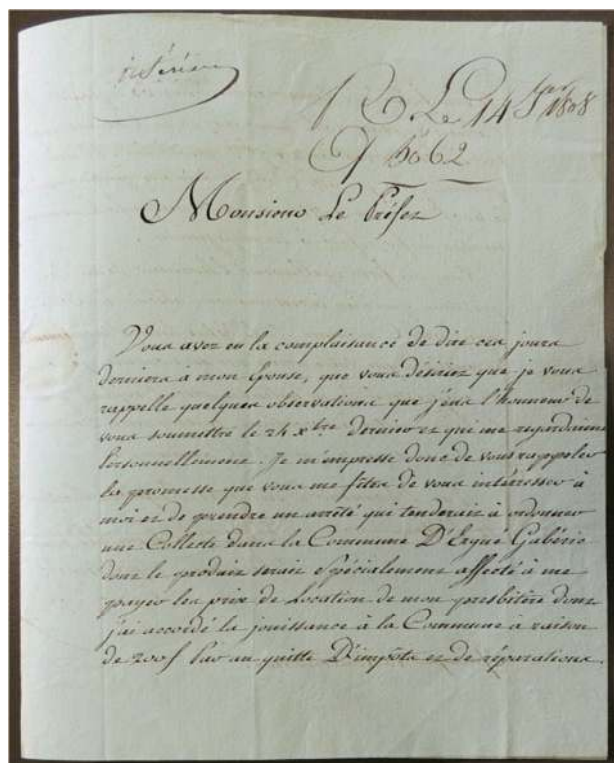 R Le 14 Jer 1808
5062
Monsieur Le Préfet
Vous avez eu la complaisance de dire ces jours
derniers à mon Epouse, que vous désiriez que je vous
rappelle quelques observations que j'eus l'honneur de
vous soumettre le 24 xbre dernier et qui me regardaient
Personnellement. Je m'empresse donc de vous rappeler
la promesse que vous me fîtes de vous intéresser à
moi et de prendre un arrêté qui tenderait à ordonner
une Collecte dans la Commune D'Ergué Gabéric
dont le produit serait Spécialement affecté à me
payer les prix de Location de mon presbitère dont
j'ai accordé la jouissance à la Commune à raison
de 200f Par an quitte D'impôts et de réparations.